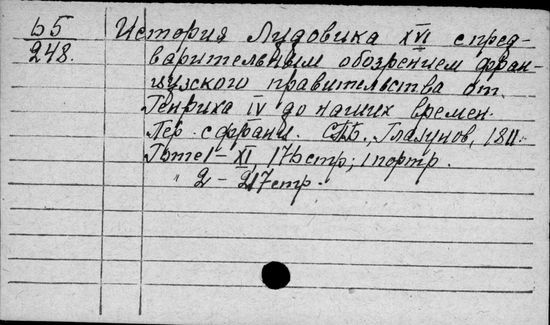 65
248.
История Людовика XVI с пред-
варительным обозрением фран-
цузского правительства от
Генриха IV до наших времен.
Пер. с франц. СПБ., Глазунов, 1811.
XI, 176 стр; 1 портр.
" 2 - 217 стр.